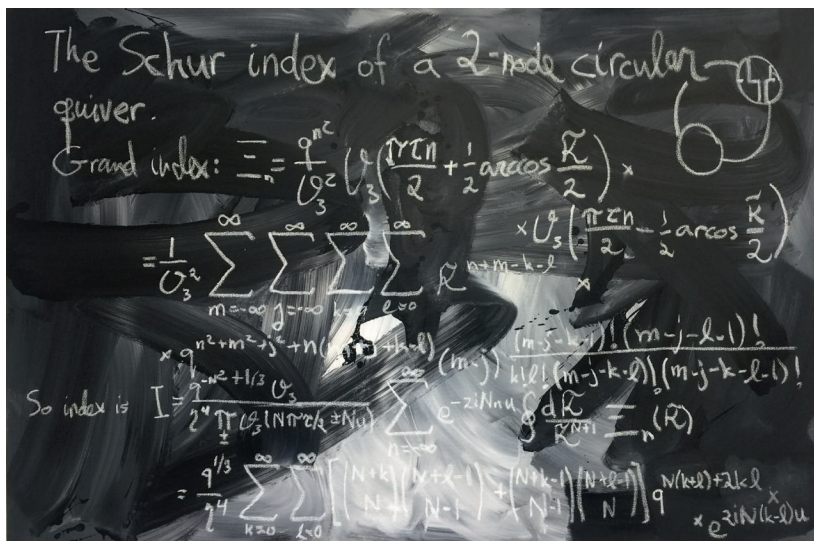 The Schur index of a 2-node circular
quiver.
Grand index: Ξ_n = q^{n²}/ϑ_3² ϑ_3(πτn/2 + 1/2 arccos κ̃/2) ×
× ϑ_3(πτn/2 - 1/2 arcos κ̃/2)
= 1/ϑ_3² ∑_{m=-∞}^{∞} ∑_{j=-∞}^{∞} ∑_{k=0}^{∞} ∑_{l=0}^{∞} κ̃^{n+m-k-l} ×
× q^{n²+m²+j²+n( +k-l)} (m-j) (m-j-k-1)!(m-j-l-1)! / k!l!(m-j-k-l)!(m-j-k-l-1)!
So index is I = q^{-N²+1/3} ϑ_3 / η^4 ∏_± ϑ_3(Nπτ/2 ± Nu) ∑_{n=-∞}^{∞} e^{-2iNnu} ∮ dκ̃/κ̃^{N+1} Ξ_n(κ̃)
= q^{1/3}/η^4 ∑_{k=0}^{∞} ∑_{l=0}^{∞} [(N+k N)(N+l-1 N-1) + (N+k-1 N-1)(N+l-1 N)] q^{N(k+l)+2kl} ×
× e^{2iN(k-l)u}